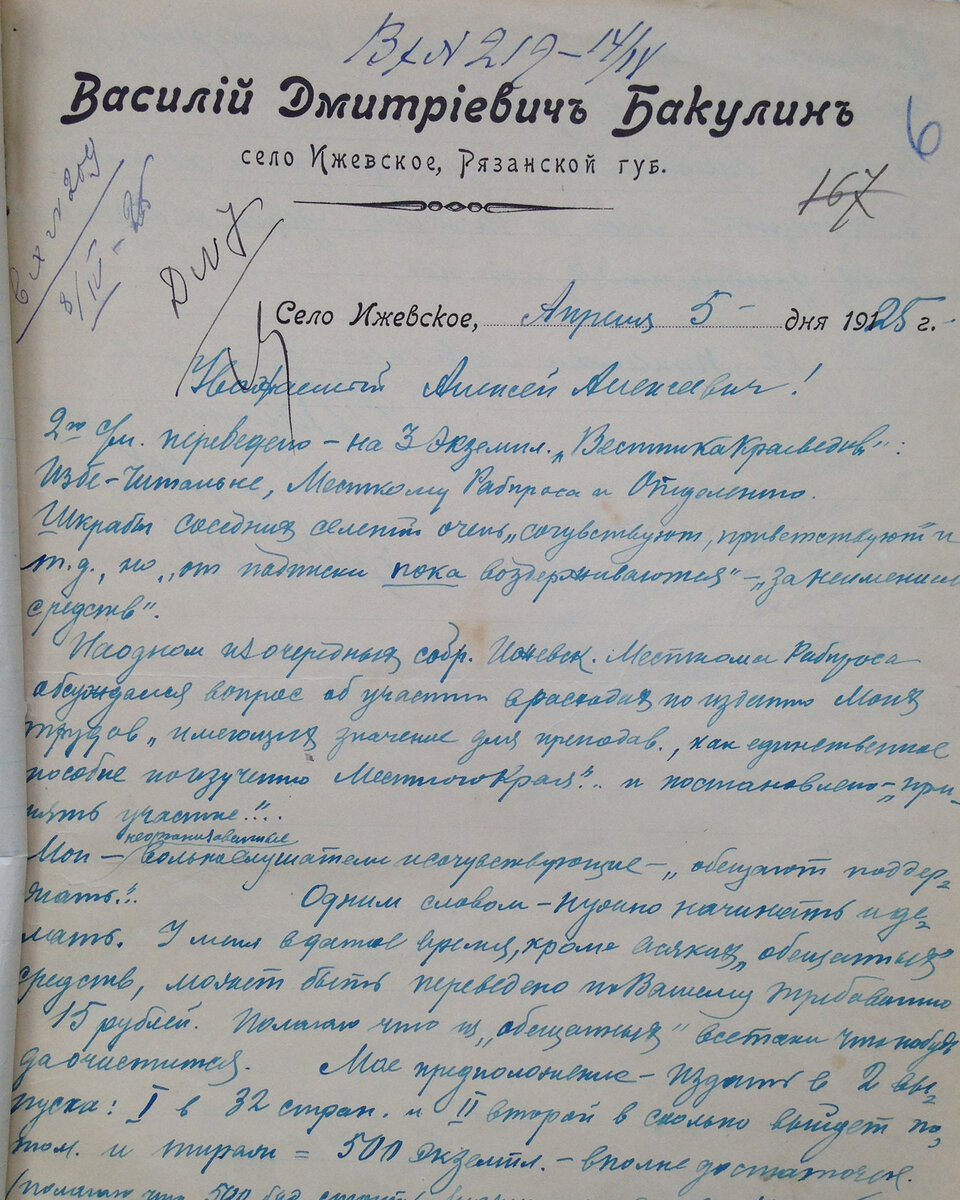 Вх N 219 – 14/IV
Василій Дмитріевичъ Бакулинъ
6
село Ижевское, Рязанской губ.
167
Вх N 209
8/IV – 25
Село Ижевское, Апреля 5 – дня 1925 г.
Уважаемый Алексей Алексеевич!
2го с/м. переведено – на 3 экземпл. „Вестника Краеведов":
Избе-Читальне, Месткому Рабпроса и Отделению.
Шкрабы соседних селений очень „сочувствуют, приветствуют" и
т.д., но „от подписки пока воздерживаются" – „за неимением
средств".
На одном из очередных собр. Ижевск. Месткома Рабпроса
обсуждался вопрос об участии в расходах по изданию моих
трудов „имеющих значение для преподав., как единственное
пособие по изучению Местного Края".. и постановлено – „при-
нять участие"...
неорганизованные
Мои – вольнослушатели и сочувствующие – „обещают поддер-
жать"..
Одним словом – нужно начинать и де-
лать. У меня в данное время, кроме всяких „обещанных"
средств, может быть переведено по Вашему требованию
15 рублей. Полагаю что из „обещанных" всетаки что нибудь
да очистится. Мое предположение – издать в 2 вы-
пуска: I в 32 стран. и II второй в сколько выйдет по-
том. и тираж = 500 экземпл. – вполне достаточен.
полагаю что 500